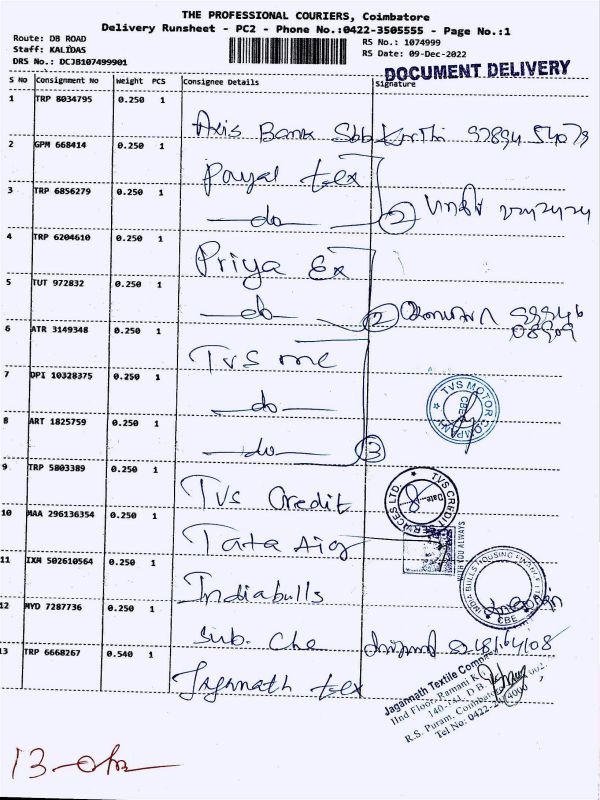 THE PROFESSIONAL COURIERS, Coimbatore
Delivery Runsheet - PC2 - Phone No.:0422-3505555 - Page No.:1
Route: DB ROAD
Staff: KALIDAS
DRS No.: DCJB107499901
RS No.: 1074999
RS Date: 09-Dec-2022
DOCUMENT DELIVERY
S No Consignment No Weight PCS Consignee Details Signature
1 TRP 8034795 0.250 1 Axis Bank
2 GPM 668414 0.250 1 Payal tex
3 TRP 6856279 0.250 1 do 2
4 TRP 6204610 0.250 1 Priya Ex
5 TUT 972832 0.250 1 do 2
6 ATR 3149348 0.250 1 TVS
7 DPI 10328375 0.250 1 do
8 ART 1825759 0.250 1 do 3
TVS MOTOR COMPANY CBE
9 TRP 5803389 0.250 1 TVS Credit
TVS CREDIT SERVICES LTD. Date
10 MAA 296136354 0.250 1 Tata Aig
WITH YOU ALWAYS
11 IXM 502610564 0.250 1 Indiabulls
INDIA BULLS HOUSING FINANCE CBE
12 MYD 7287736 0.250 1 Sub. Che
13 TRP 6668267 0.540 1 Jagannath tex
Jagannath Textile Company
IInd Floor, Ramani
R.S. Puram, Coimbatore
Tel No: 0422-
13